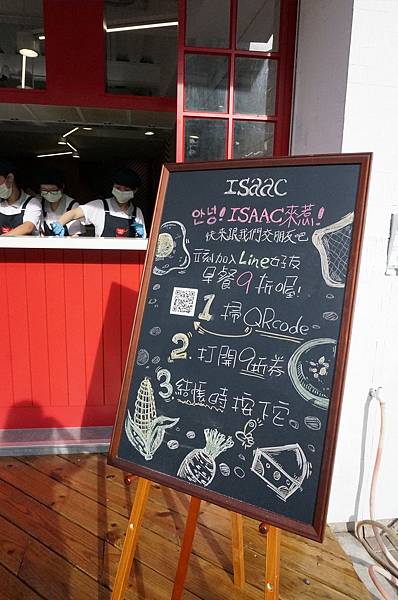 ISaac
안녕! ISAAC來惹!
快來跟我們交朋友吧
立刻加入Line好友
早餐9折喔!
1 掃QRcode
2. 打開9折券
3 結帳時按下它